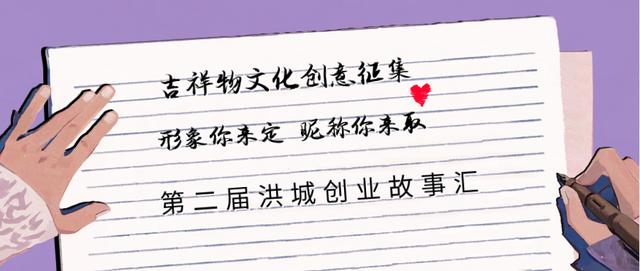 吉祥物文化创意征集
形象你来定 昵称你来取
第二届洪城创业故事汇